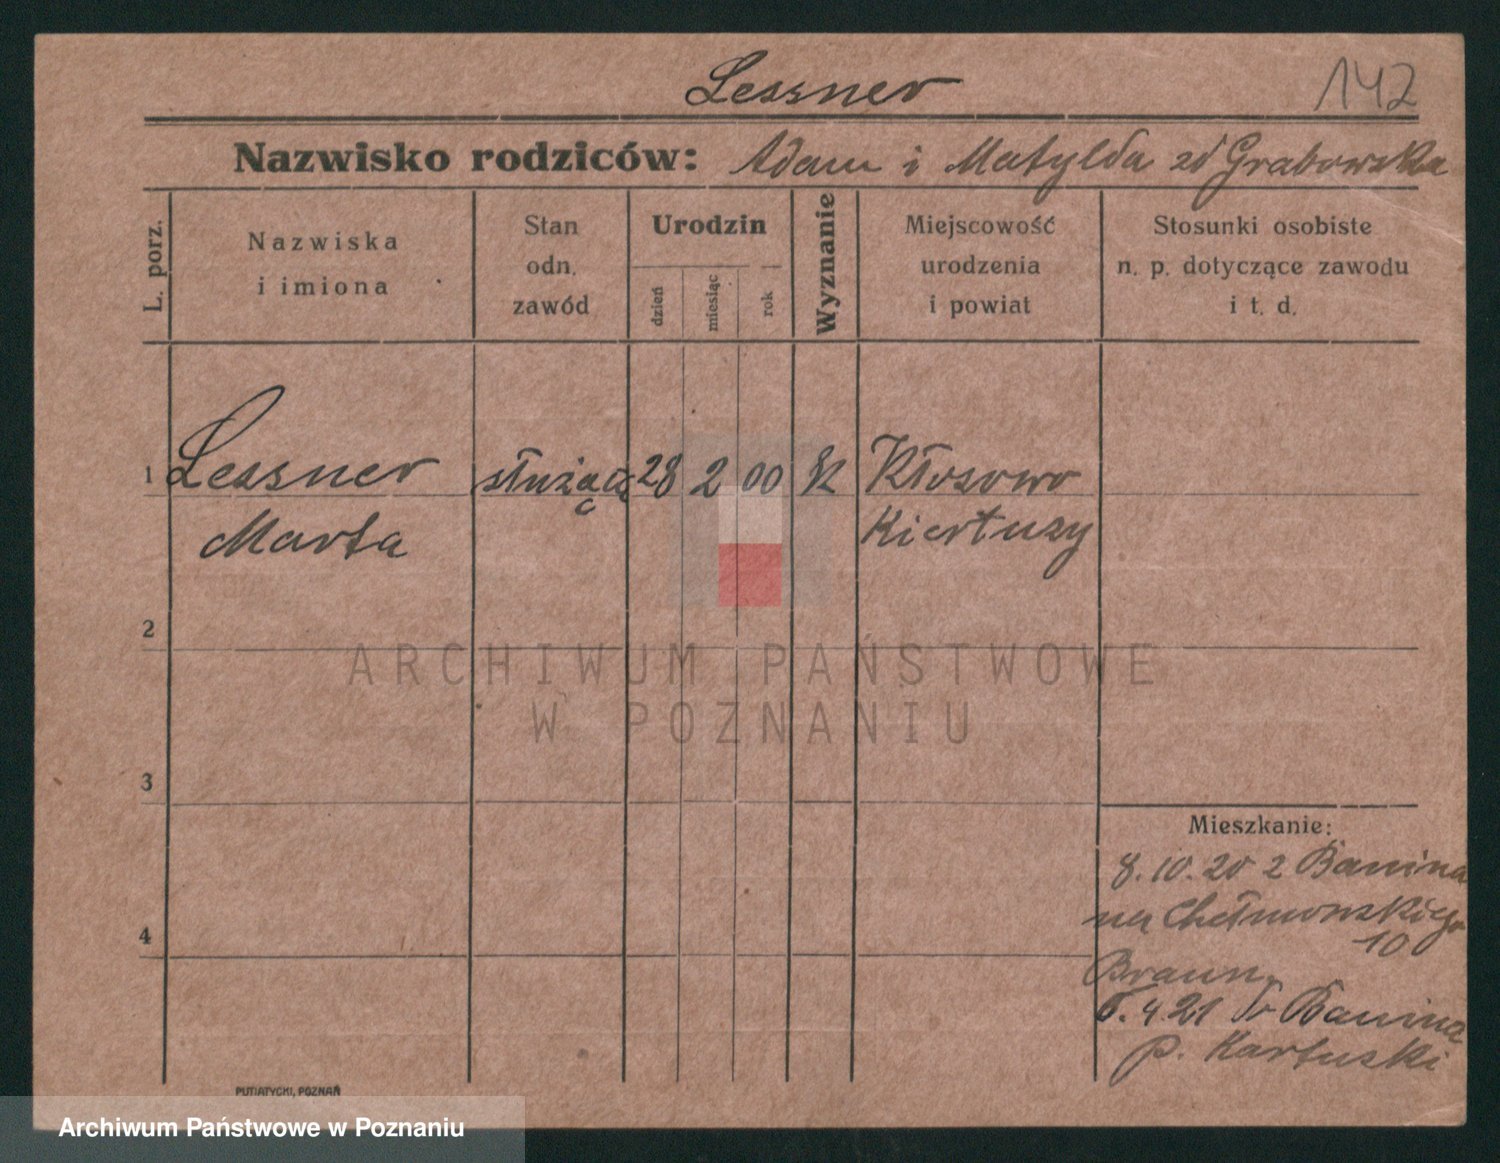 Lessner
142
Nazwisko rodziców: Adam i Matylda zd Grabowska
L. porz.
Nazwiska
i imiona
Stan
odn.
zawód
Urodzin
dzień
miesiąc
rok
Wyznanie
Miejscowość
urodzenia
i powiat
Stosunki osobiste
n. p. dotyczące zawodu
i t. d.
1 Lessner służąca 28 2 00 k Kłosowo
Marta Kiertuzy
2
ARCHIWUM PAŃSTWOWE
W POZNANIU
3
Mieszkanie:
8.10.20 z Banina
na Chełmonskiego
10
4
Braun
6.4.21 Banina
p. Kartuski
PUTIATYCKI, POZNAŃ
Archiwum Państwowe w Poznaniu